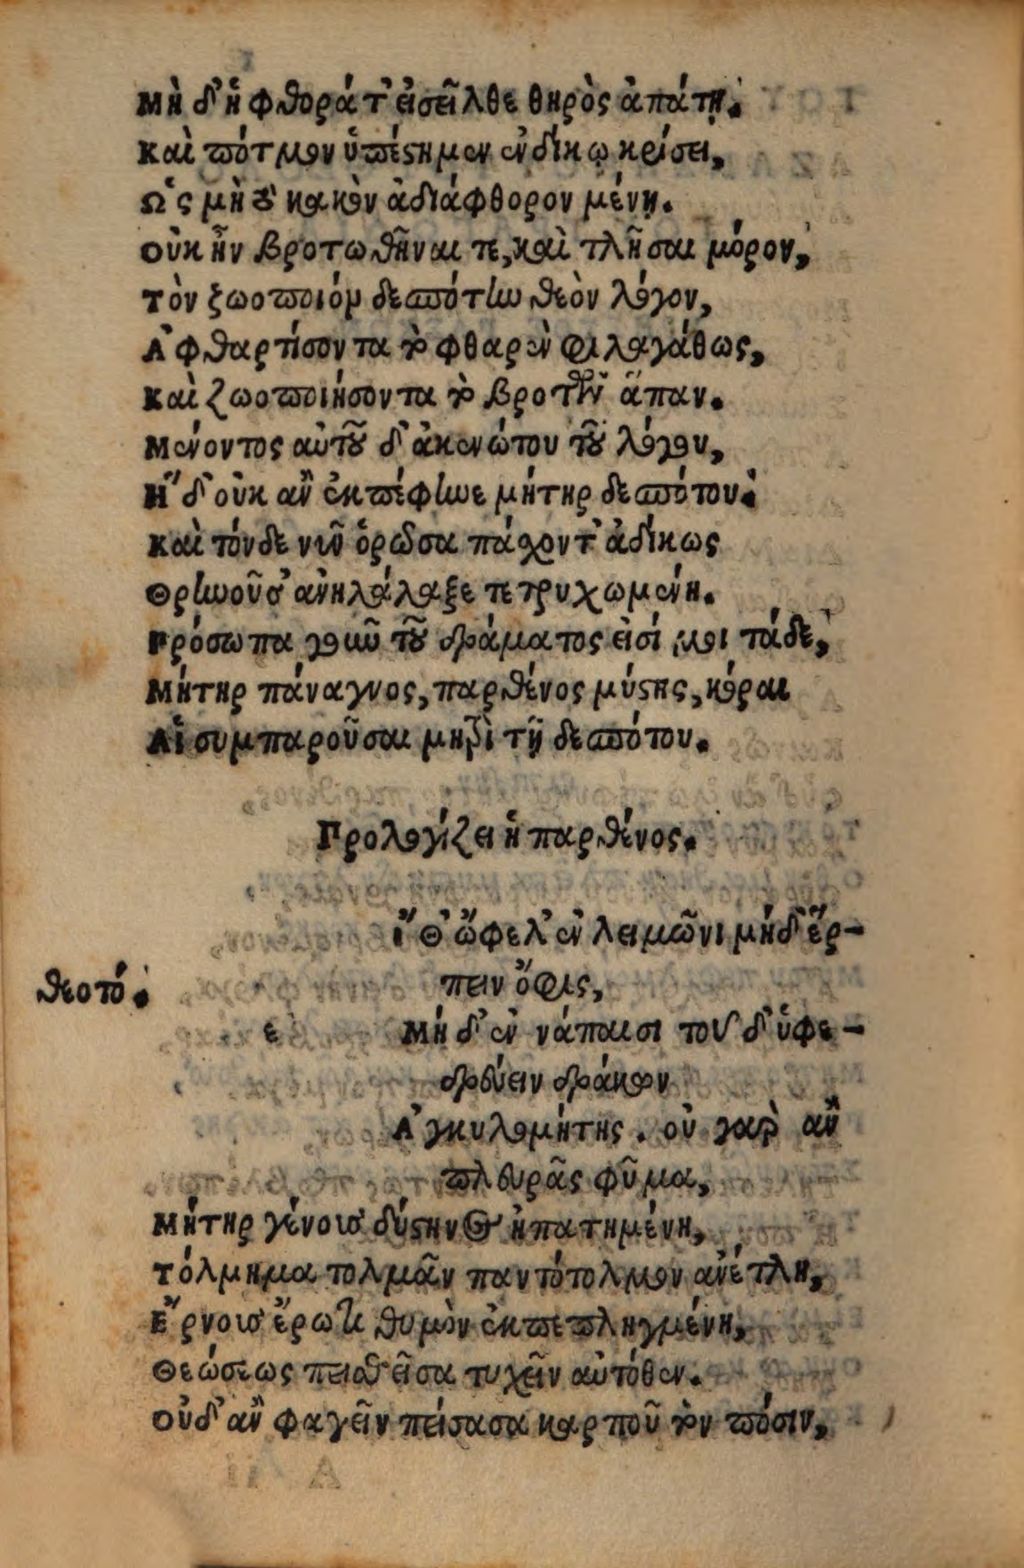 Μὴ δ' ἡ φθορά τ' εἰσεῖλθε θηρὸς ἀπάτῃ.
Καὶ πότμον ὑπέστημεν ἐνδίκῳ κρίσει,
Ὡς μὴ τὸ κακὸν ἀδιάφθορον μένῃ.
Οὐκ ἦν βροτωθῆναι τε, καὶ τλῆσαι μόρον,
Τὸν ζωοποιὸμ δεσπότην θεὸν λόγον,
Ἀφθαρτίσοντα τὸ φθαρὲν φιλαγάθως,
Καὶ ζωοποιήσοντα τὸ βροτῶν ἅπαν.
Μένοντος αὐτοῦ δ' ἀκενώτου τοῦ λόγου,
Ἥδ' οὐκ ἂν ἐκπέφηνε μήτηρ δεσπότου.
Καὶ τόνδε νῦν ὁρῶσα πάσχοντ' ἀδίκως
Θρηνοῦσ' ἀνηλάλαξε τετρυχωμένη.
Πρόσωπα γοῦν τοῦ δράματος εἰσί μοι τάδε,
Μήτηρ πάναγνος, παρθένος μύστης, κόραι
Αἱ συμπαροῦσαι μητρὶ τῇ δεσπότου.
Προλογίζει ἡ παρθένος.
Εἴθ' ὤφελ' ἐν λειμῶνι μήδ' ἕρ-
πειν ὄφις,
θεοτό.
Μὴ δ' ἐν νάπαισι τοῦδ' ὑφε-
δρεύειν δράκων
Ἀγκυλομήτης. οὐ γὰρ ἂν
πλευρᾶς φῦμα,
Μήτηρ γένους δύστηνος ἠπατημένη,
Τόλμημα τολμᾶν παντότολμον ἀνέτλη,
Ἔρνους ἔρωτι θυμὸν ἐκπεπληγμένη,
Θεώσεως πεισθεῖσα τυχεῖν αὐτόθεν.
Οὐδ' ἂν φαγεῖν πείσασα καρποῦ τὸν πόσιν,